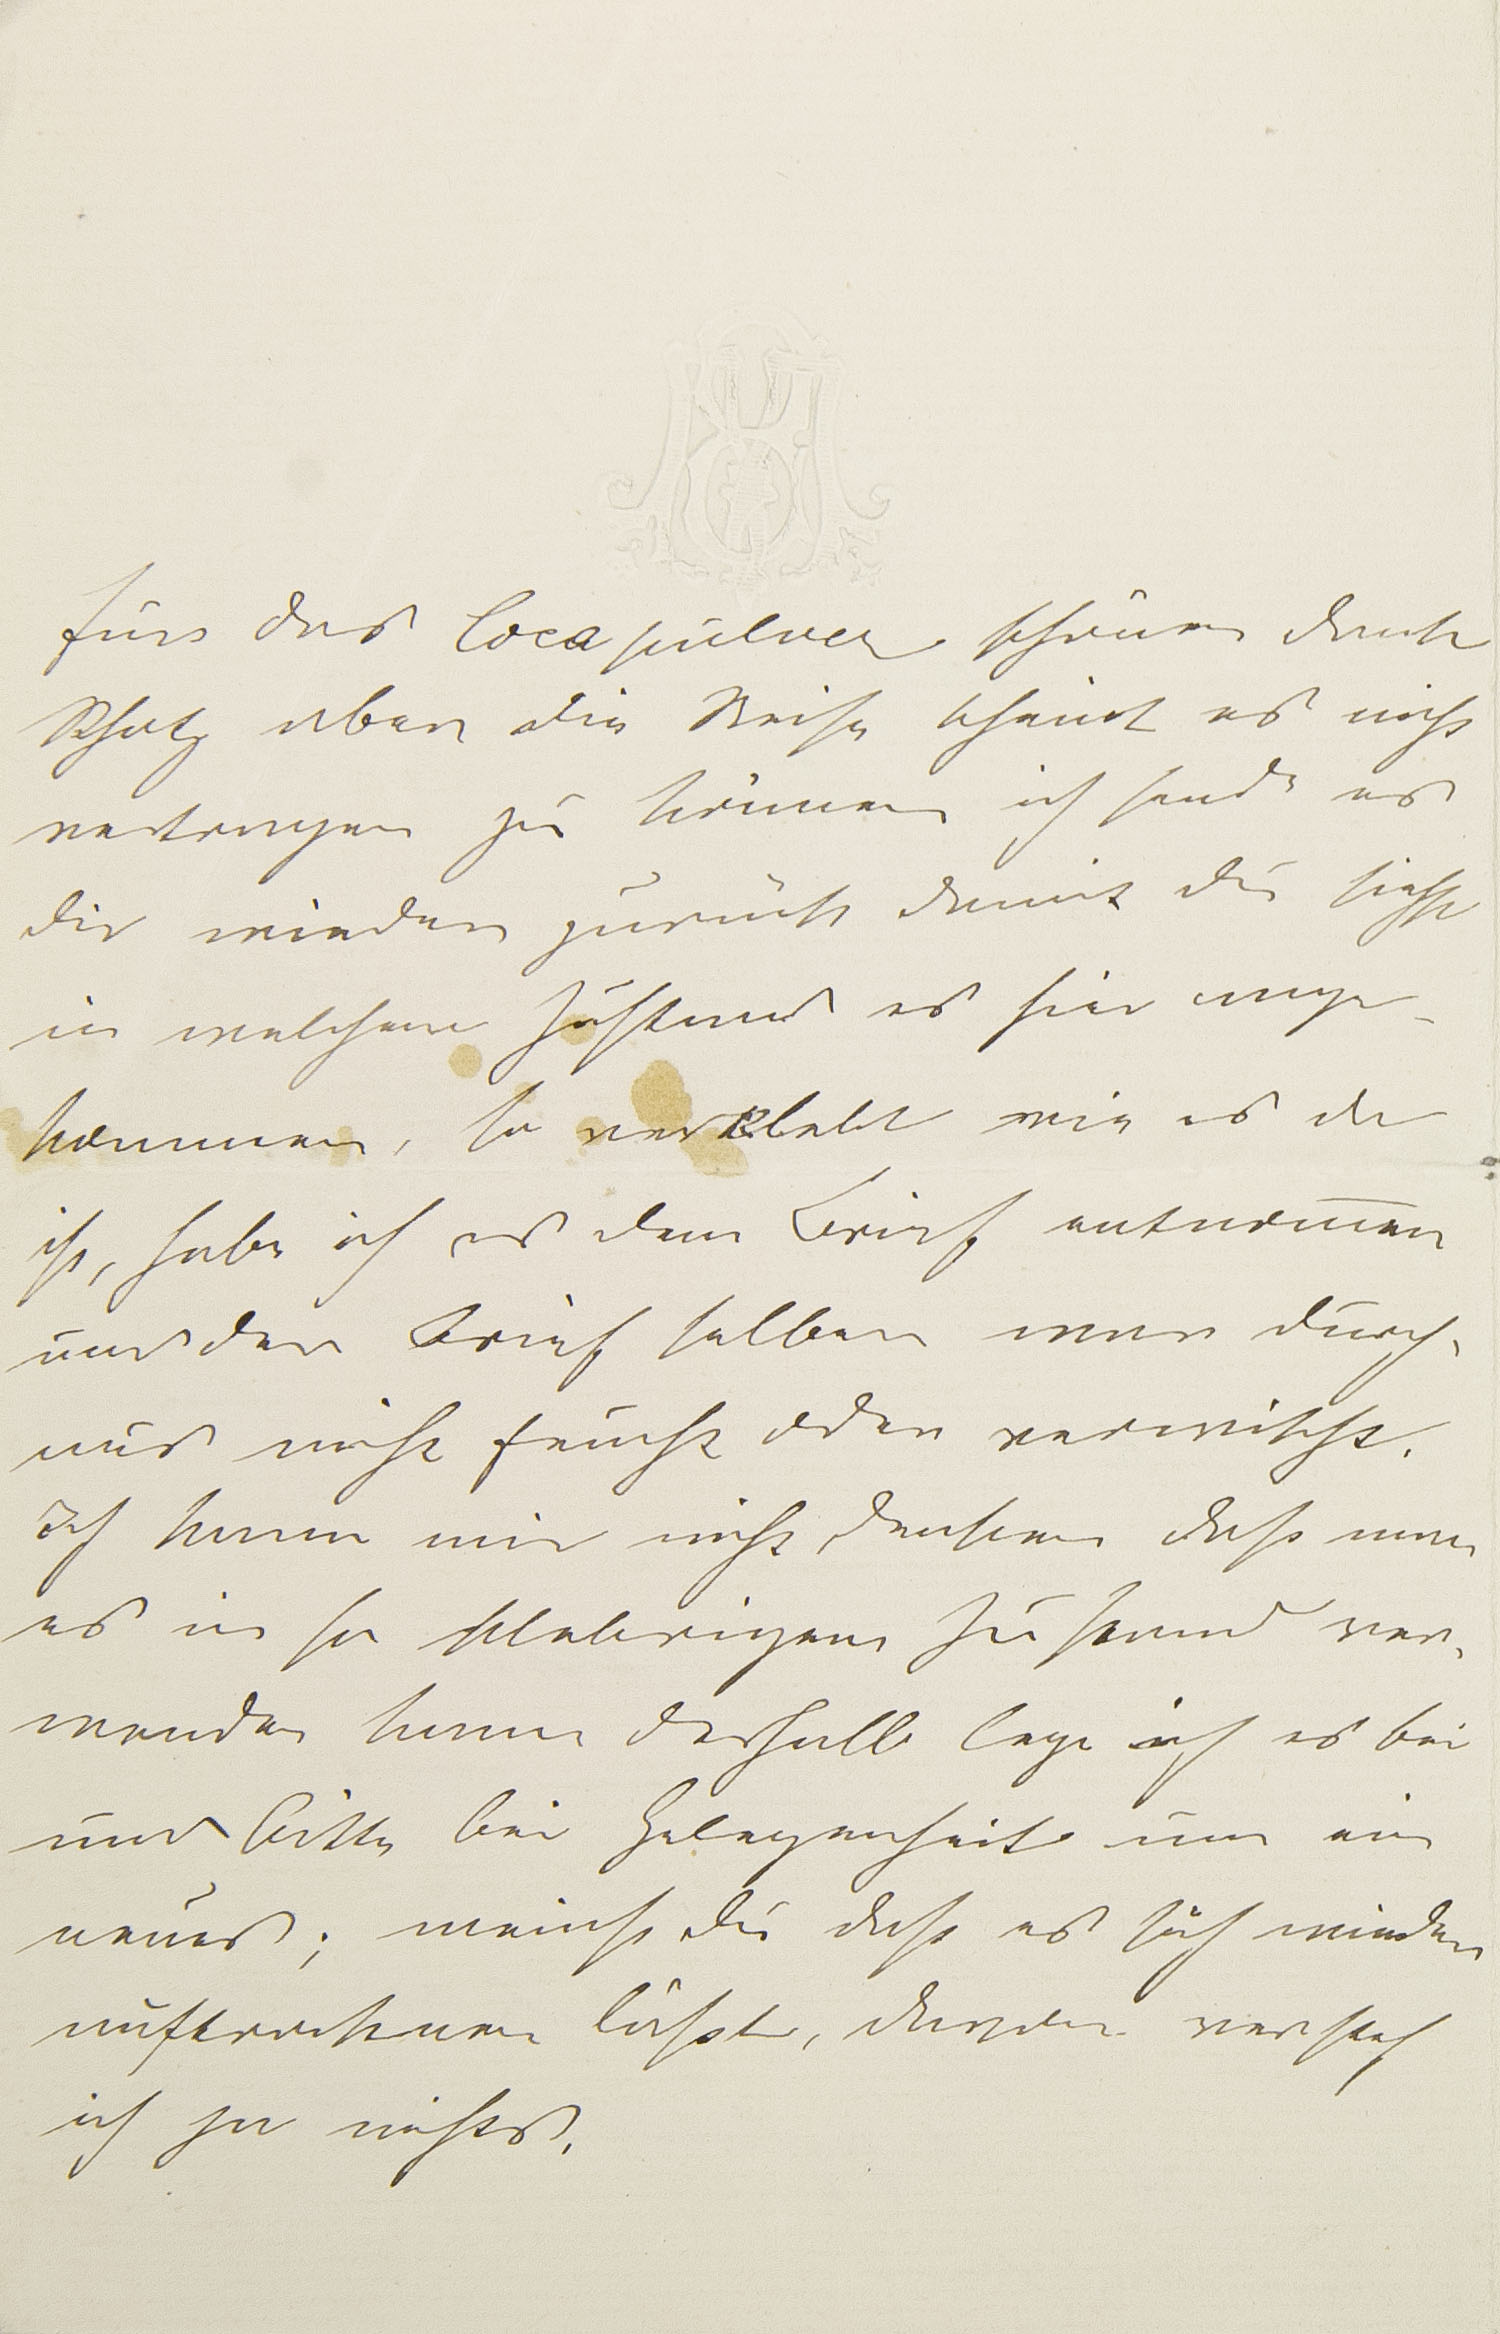 fürs das Cocapulver schönen Dank
Schatz aber die Reise scheint es nicht
vertragen zu können ich sende es
dir wieder zurück damit du siehst
in welchem Zustand es hier ange-
kommen, so verklebt wie es da
ist, habe ich es dem Brief entnom̅en
und der Brief selber war durch-
aus nicht feucht oder verwischt.
Ich kann mir nicht denken dass man
es in so klebrigem Zustand ver-
wenden kann deshalb lege ich es bei
und bitte bei Gelegenheit um ein
neues; meinst du dass es sich wieder
auftrocknen lässt, davon versteh
ich ja nichts.